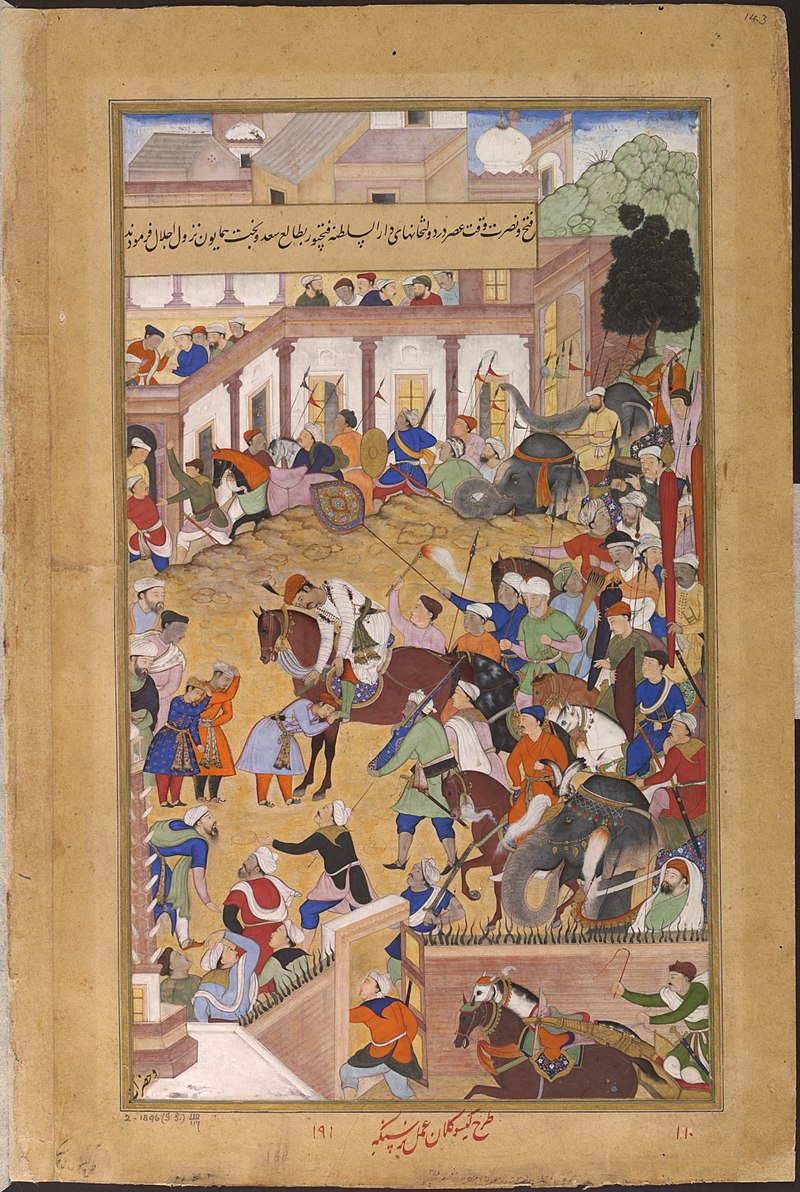 143
فتح و نصرت وقت عصر در دولتخانهای دار السلطنه فتحپور بطالع سعد و بخت همایون نزول اجلال فرمودند
2-1896 (I.S.) 110/117
۱۹۱
طرح کیسو کلان عمل نرسنگه
۱۱۰